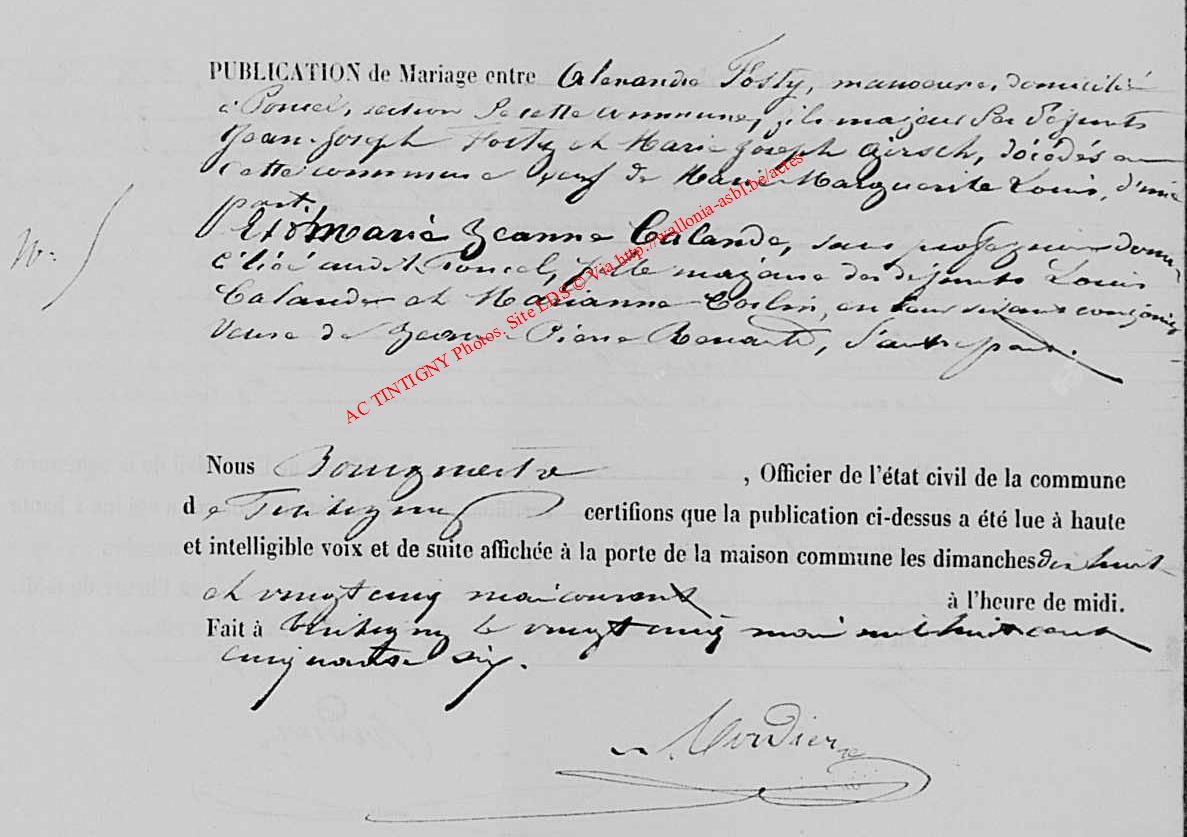 PUBLICATION de Mariage entre Alexandre Fosty, manoeuvre, domicilié
à Poncel, section de cette commune, fils majeur des défunts
Jean-Joseph Fosty et Marie Joseph Girsch, décédés en
cette commune veuf de Marie Marguerite Louis, d'une
part,
N° 5
Et Marie Jeanne Calande, sans profession domi-
ciliée audit Poncel, fille majeure des défunts Louis
Calande et Marianne en leur vivant conjoints
Veuve de Jean Pierre d'autre part.
AC TINTIGNY Photos, Site LDS © Via http://wallonia-asbl.be/actes
Nous Bourgmestre , Officier de l'état civil de la commune
de Tintigny certifions que la publication ci-dessus a été lue à haute
et intelligible voix et de suite affichée à la porte de la maison commune les dimanches dix huit
et vingt cinq mai courant à l'heure de midi.
Fait à Tintigny le vingt cinq mai mil huit cent
cinquante six.